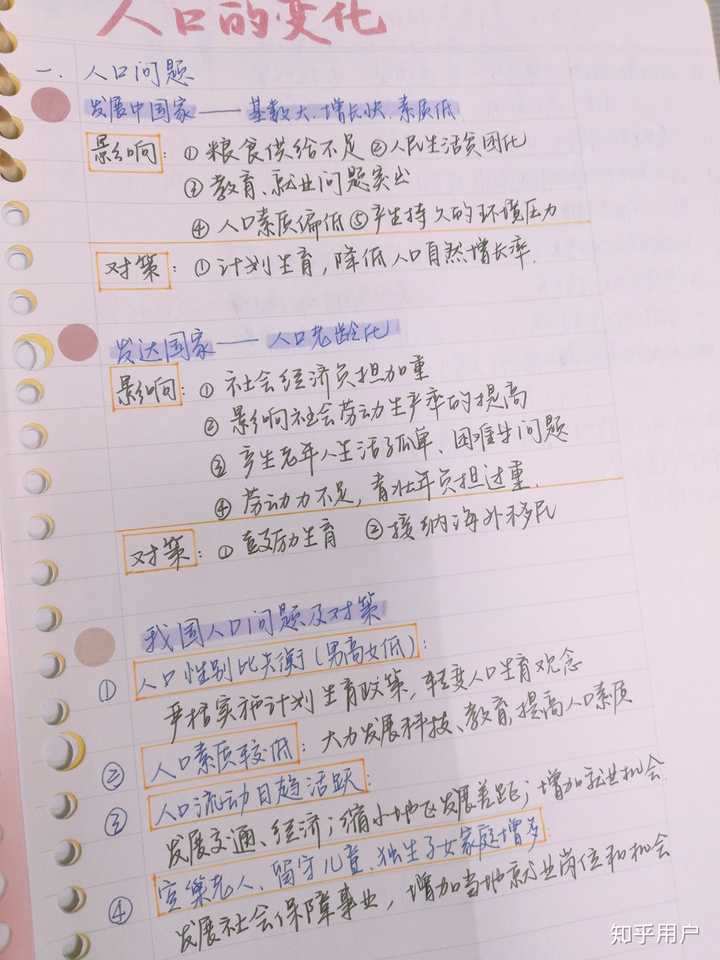 人口的变化
一. 人口问题
发展中国家——基数大、增长快、素质低
影响：①粮食供给不足 ②人民生活贫困化
③教育、就业问题突出
④人口素质偏低 ⑤产生持久的环境压力
对策：①计划生育，降低人口自然增长率.
发达国家——人口老龄化
影响：①社会经济负担加重
②影响社会劳动生产率的提高
③产生老年人生活孤单、困难生问题
④劳动力不足，青壮年负担过重.
对策：①鼓励生育 ②接纳海外移民
我国人口问题及对策
①人口性别比失衡(男高女低)：
严格实施计划生育政策，转变人口生育观念
②人口素质较低：大力发展科技、教育，提高人口素质
③人口流动日趋活跃：
发展交通、经济；缩小地区发展差距；增加就业机会
④空巢老人、留守儿童、独生子女家庭增多：
发展社会保障事业，增加当地就业岗位和机会
知乎用户